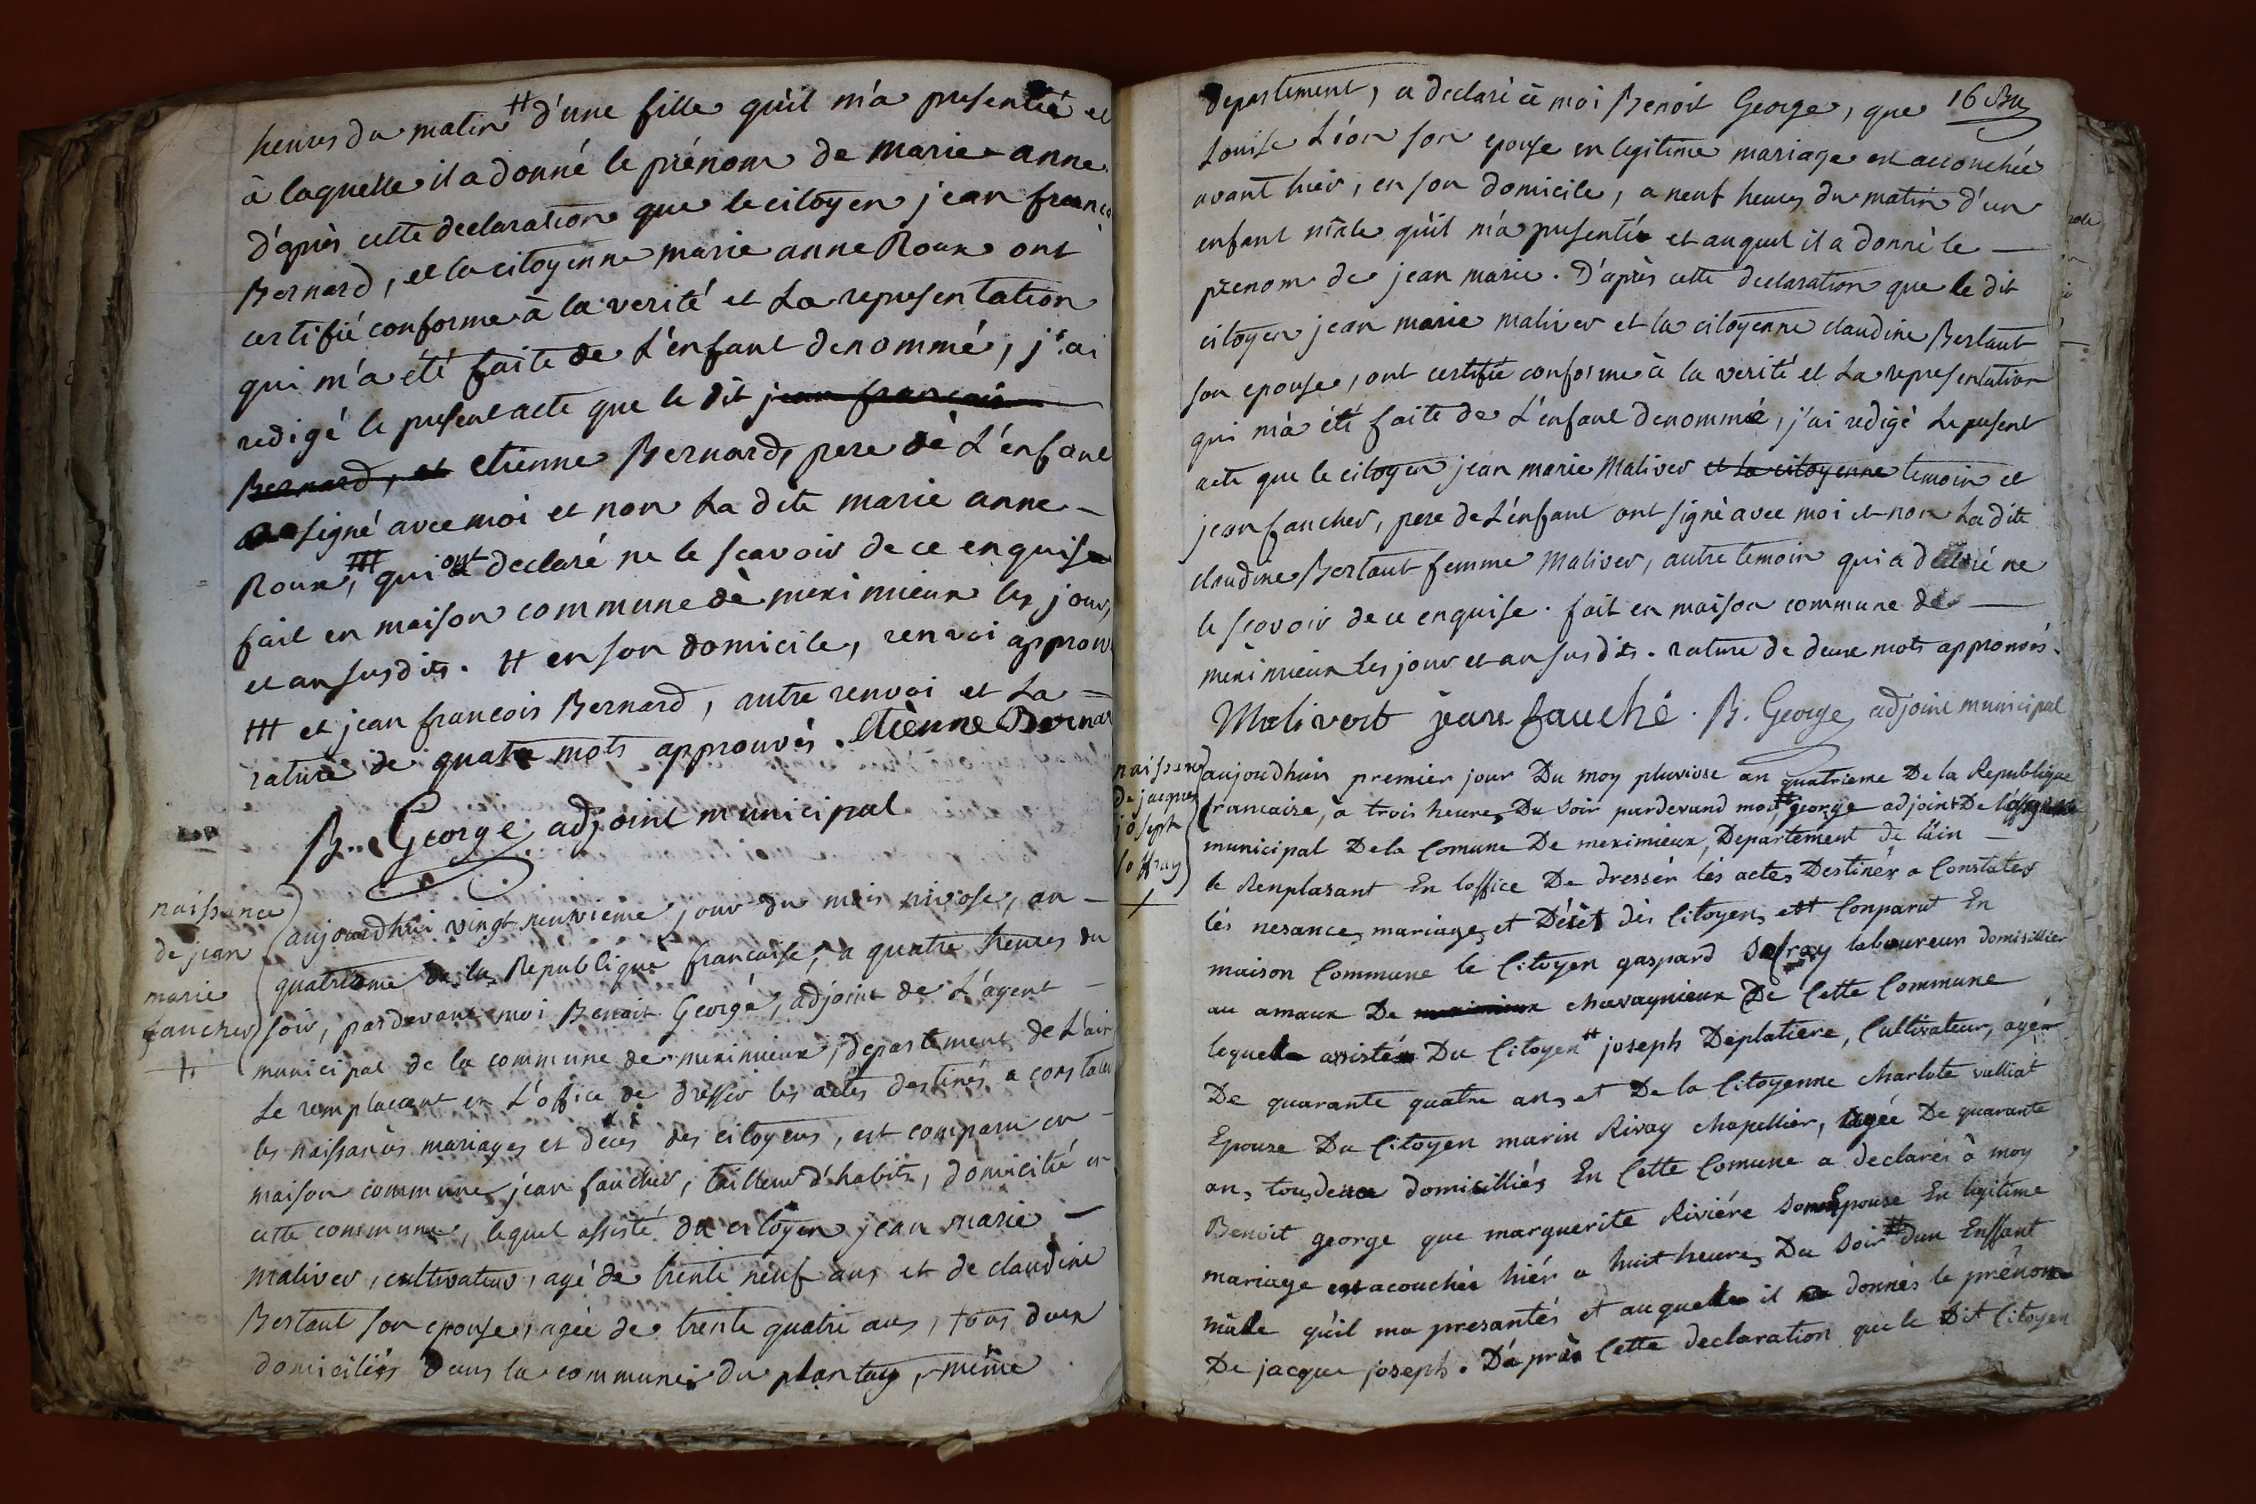 heures du matin # d'une fille qu'il m'a presentée et
à laquelle il a donné le prénom de marie anne
d'après cette declaration que le citoyen jean franco
Bernard, et la citoyenne marie anne Roux ont
certifié conforme à la verité et La representation
qui m'a été faite de L'enfant denommé, j'ai
redigé le present acte que le dit jean francois
Bernard, et etienne Bernard, pere de L'enfant
signé avec moi et non La dite marie anne -
Roux, ## qui ont declaré ne le scavoir de ce enquise
fait en maison commune de meximieux les jour
et an susdits. # en son domicile, renvoi approuv
## et jean francois Bernard, autre renvoi et La -
rature de quatre mots approuvés. Etienne Bernar
B. George adjoint municipal
naissance
de jean
marie
faucher
aujourdhui vingt neuvieme jour du mois nivose, an -
quatrieme de la Republique francaise, a quatre heures du
soir, pardevant moi Benoit George, adjoint de L'agent -
municipal de la commune de meximieux, departement de L'ain
Le remplacant en L'office de dresser les actes destinés a constater
les naissances mariages et decès des citoyens, est comparu en -
maison commune jean faucher, tailleur d'habits, domicilié en
cette commune, lequel assisté du citoyen jean marie -
maliver, cultivateur, agé de trente neuf ans et de claudine
Bertaut son epouse, agée de trente quatre ans, tous deux
domiciliés dans la commune du plantay, même
16 Bis
departement, a declaré à moi Benoit George, que
Louise Léon son epouse en legitime mariage est accouchée
avant hier, en son domicile, a neuf heures du matin d'un
enfant mâle qu'il m'a presenté et auquel il a donné le -
prenom de jean marie. D'après cette declaration que le dit
citoyen jean marie maliver et la citoyenne claudine Bertaut
son epouse, ont certifié conforme à la verité et La representation
qui m'a été faite de L'enfant denommé, j'ai redigé Le present
acte que le citoyen jean marie Maliver et la citoyenne temoin et
jean faucher, pere de L'enfant ont signé avec moi et non La dite
claudine Bertaut femme Maliver, autre temoin qui a declaré ne
le scavoir de ce enquise. fait en maison commune de -
meximieux Les jour et an susdits. rature de deux mots approuvés.
Malivert jean fauché. B. George adjoint municipal
naissance
de jacques
joseph
soffray
aujourdhuis premier jour Du moy pluviose an quatrieme De la Republique
francaise, a trois heures Du soir pardevand moi # george adjoint De
municipal De la Comune De meximieux, Departement de lain -
le Renplasant En loffice De dressér lés actes Destinéz a Constater
lés nesances mariages et Désèt dès Citoyens ett Conparut En
maison Commune le Citoyen gaspard Sofray laboureur domisillier
au amaux De meximieux chavagnieux De Cette Commune
lequelle assistés Du Citoyen # joseph Déplatiere, Cultivateur, agér
De quarante quatre ans et De la Citoyenne charlote vulliat
Epouse Du Citoyen marin Rivay chapellier, agée De quarante
ans, tous deux domisilliés En Cette Comune a declarés à moy
Benoit george que marguerite Riviére son Epouse En ligitime
mariage est acouchée hiér a huit heures Du soir ## dun Enffant
mâle qu'il ma presantés et auquelle il a donnés le prénom
De jacque joseph. D'après Cette declaration que le Dit Citoyen